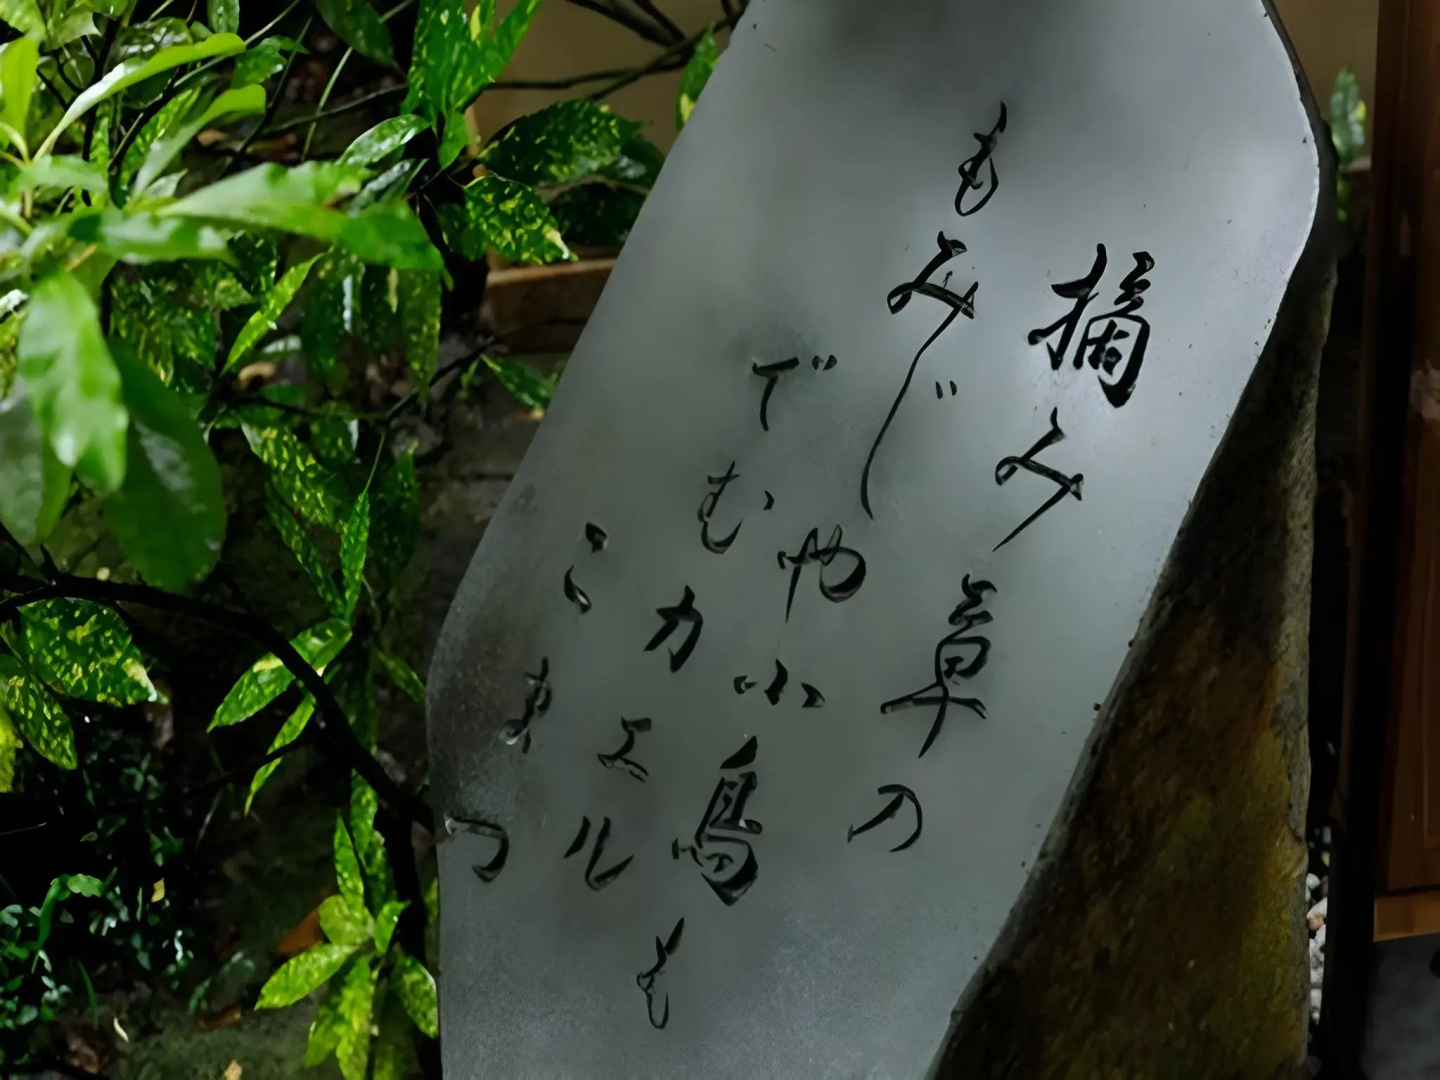 摘み草の
もみじや小鳥も
でむカエル
こまつ